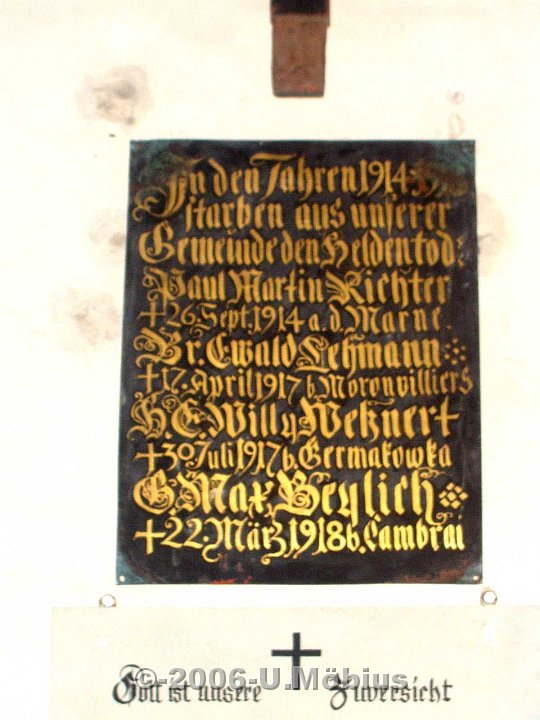 In den Jahren 1914-
starben aus unserer
Gemeinde den Heldentod:
Paul Martin Richter
+26.Sept.1914 a.d.Marne.
Br. Ewald Lehmann
+17.April 1917 b Moronvilliers
H E. Willy Wetznert
+30.Juli 1917 b. Germakowka
G. Max Beylich
+22.März 1918 b. Cambrai
Gott ist unsere Zuversicht
©-2006-U.Möbius